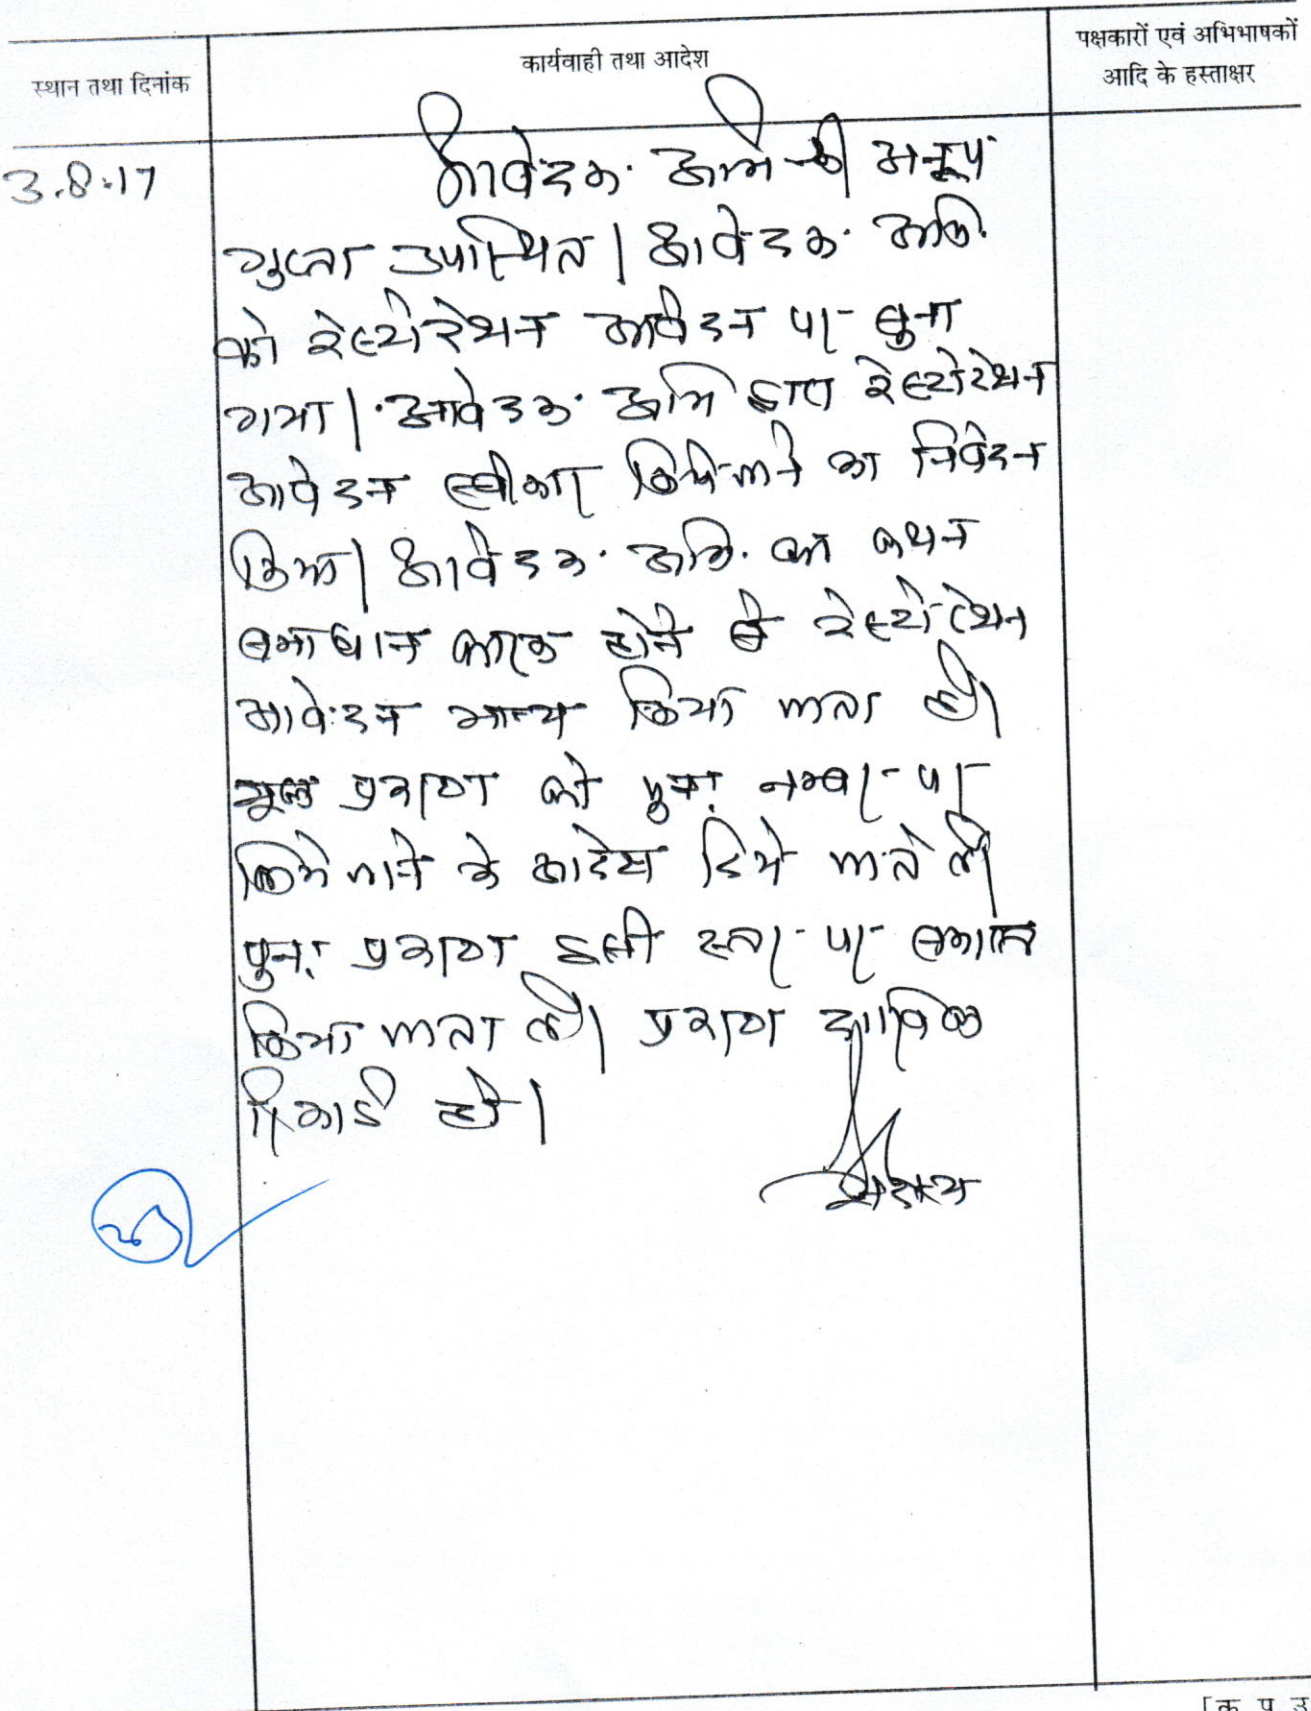 स्थान तथा दिनांक
कार्यवाही तथा आदेश
पक्षकारों एवं अभिभाषकों
आदि के हस्ताक्षर
3.8.17
आवेदक अभि श्री अनूप
गुप्ता उपस्थित। आवेदक अभि.
को रेस्टोरेशन आवेदन पर सुना
गया। आवेदक अभि द्वारा रेस्टोरेशन
आवेदन स्वीकार किये जाने का निवेदन
किया। आवेदक अभि. का कथन
समाधान कारक होने से रेस्टोरेशन
आवेदन मान्य किया जाता है।
मूल प्रकरण को पुनः नम्बर पर
किये जाने के आदेश दिये जाते है।
पुनः प्रकरण इसी स्तर पर समाप्त
किया जाता है। प्रकरण दाखिल
रिकार्ड हो।
सदस्य
[क. प. उ.